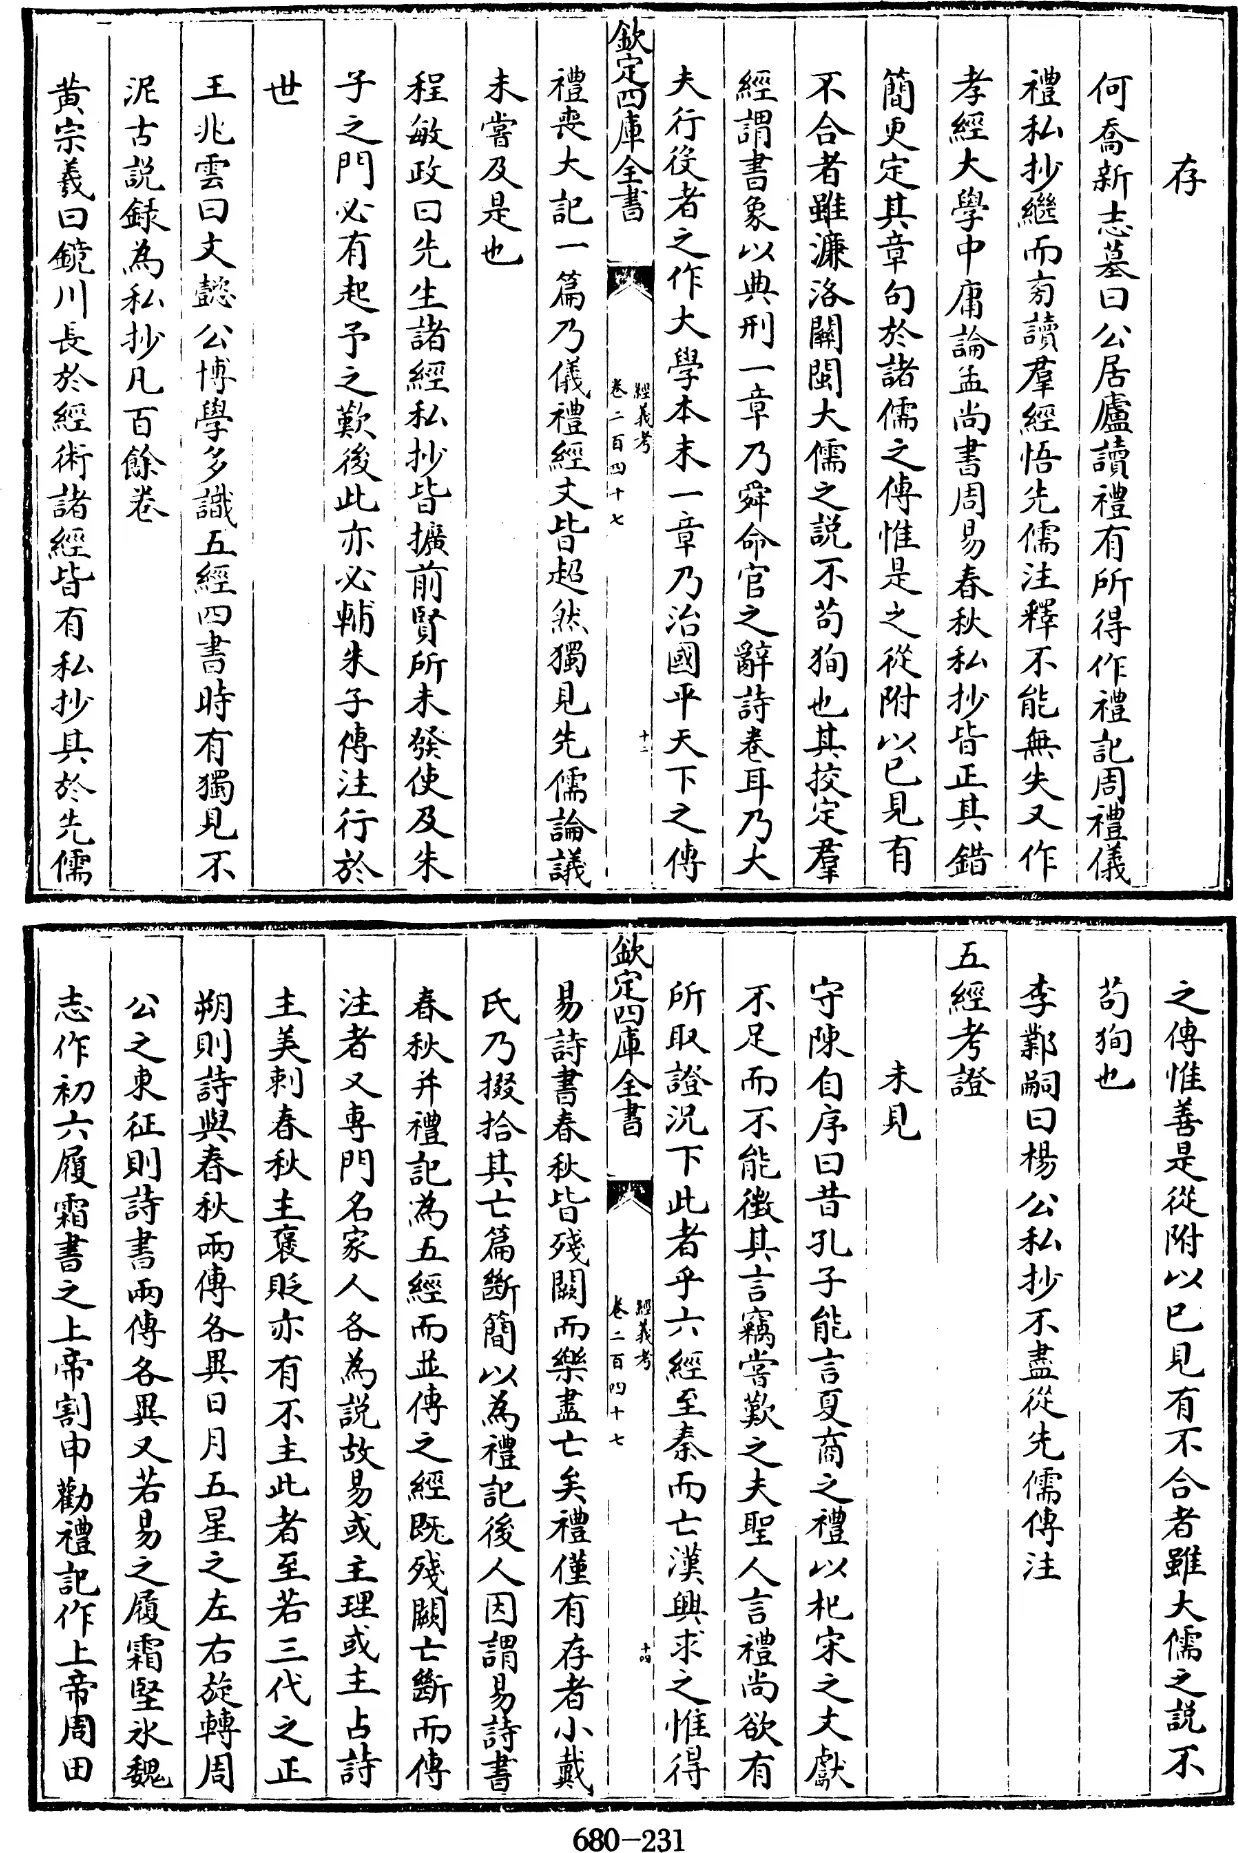 存
何喬新志墓曰公居廬讀禮有所得作禮記周禮儀
禮私抄繼而旁讀羣經悟先儒注釋不能無失又作
孝經大學中庸論孟尚書周易春秋私抄皆正其錯
簡更定其章句於諸儒之傳惟是之從附以已見有
不合者雖濂洛關閩大儒之説不苟狥也其挍定羣
經謂書象以典刑一章乃舜命官之辭詩卷耳乃大
夫行役者之作大學本末一章乃治國平天下之傳
欽定四庫全書
經義考
卷二百四十七
十二
禮喪大記一篇乃儀禮經文皆超然獨見先儒論議
未嘗及是也
程敏政曰先生諸經私抄皆擴前賢所未發使及朱
子之門必有起予之歎後此亦必輔朱子傳注行於
世
王兆雲曰文懿公博學多識五經四書時有獨見不
泥古説録為私抄凡百餘卷
黄宗羲曰鏡川長於經術諸經皆有私抄其於先儒
之傳惟善是從附以已見有不合者雖大儒之説不
苟狥也
李鄴嗣曰楊公私抄不盡從先儒傳注
五經考證
未見
守陳自序曰昔孔子能言夏商之禮以杞宋之文獻
不足而不能徵其言竊嘗歎之夫聖人言禮尚欲有
所取證況下此者乎六經至秦而亡漢興求之惟得
欽定四庫全書
經義考
卷二百四十七
十四
易詩書春秋皆殘闕而樂盡亡矣禮僅有存者小戴
氏乃掇拾其亡篇斷簡以為禮記後人因謂易詩書
春秋并禮記為五經而並傳之經既殘闕亡斷而傳
注者又專門名家人各為説故易或主理或主占詩
主美刺春秋主褒貶亦有不主此者至若三代之正
朔則詩與春秋兩傳各異日月五星之左右旋轉周
公之東征則詩書兩傳各異又若易之履霜堅氷魏
志作初六履霜書之上帝割申勸禮記作上帝周田
680-231